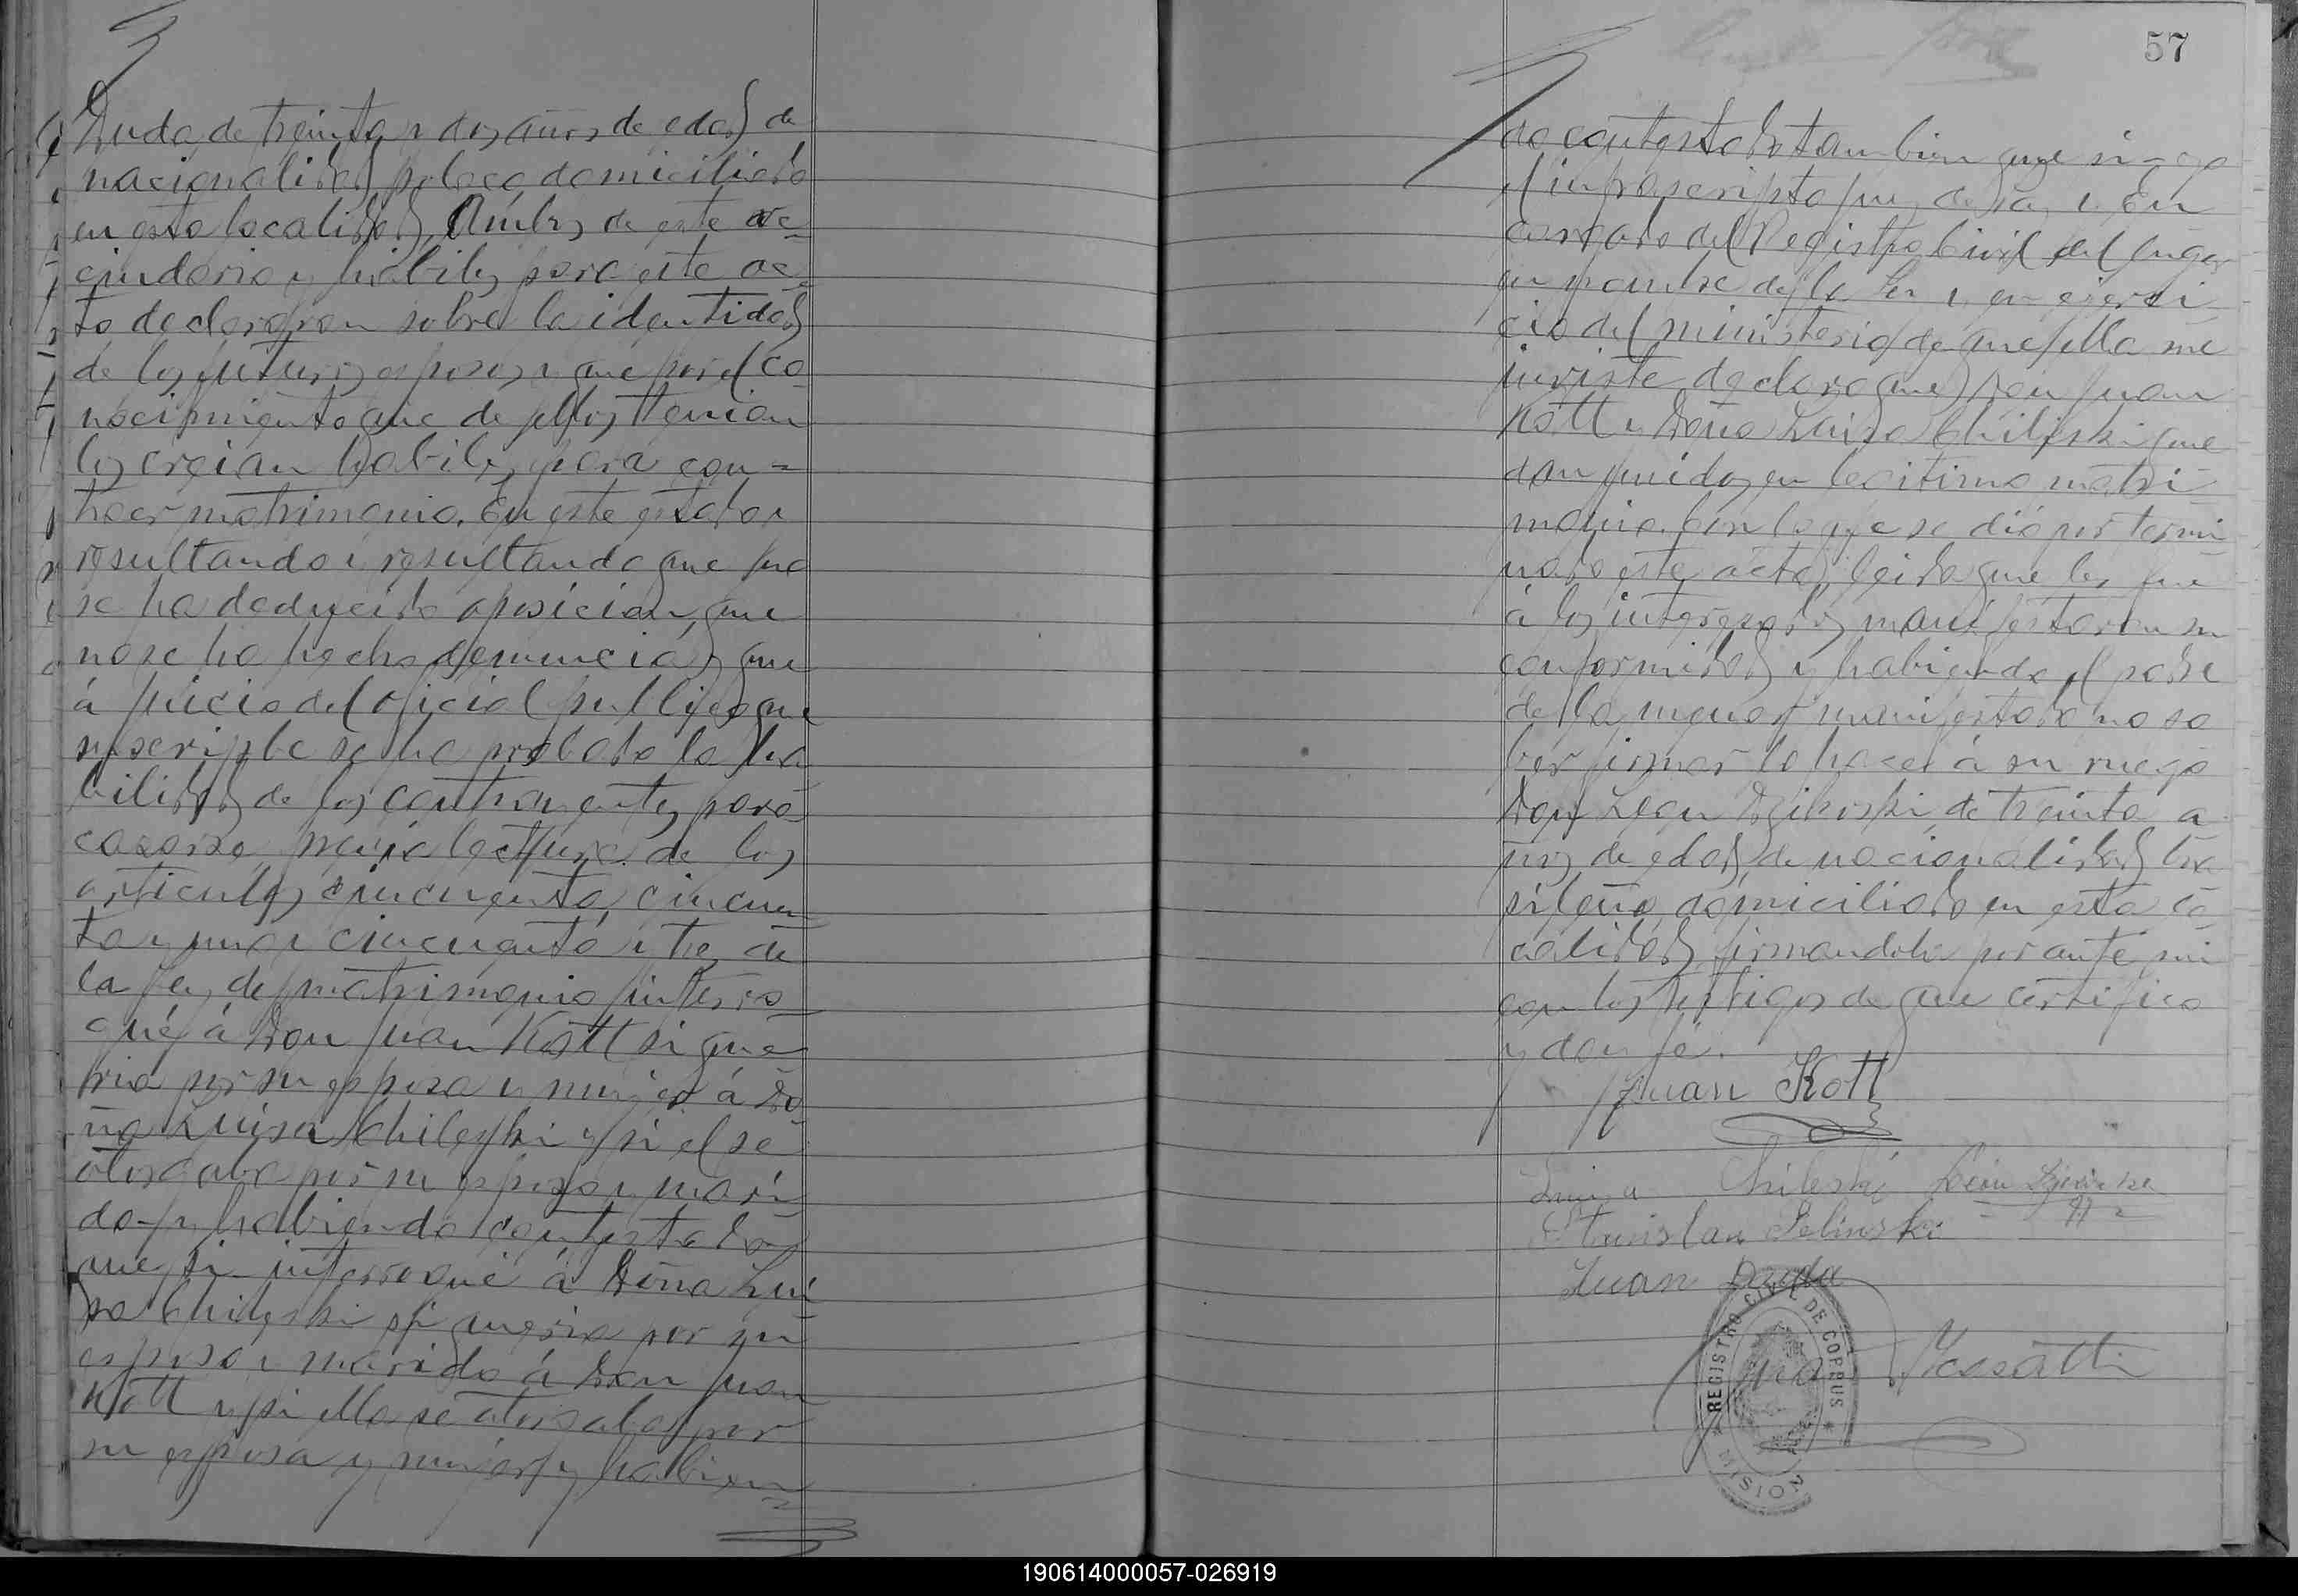 Duda de treinta y dos años de edad de
nacionalidad polaca domiciliado
en esta localidad, Ambos de este ve-
cindario y habiles para este ac-
to declararon sobre la identidad
de los futuros esposos y que por el co-
nocimiento que de ellos tenian
los creian habiles para con-
traer matrimonio. En este estado
resultando y resultando que no
se ha deducido oposicion, que
no se ha hecho denuncia y que
á juicio del oficial publico que
suscribe se ha probado la ha
bilidad de los contrayentes para
casarse previa lectura de los
articulos cincuenta, cincuen-
ta y uno y cincuenta y tres de
la ley de matrimonio interro-
gué á Don Juan Kott si que-
ria por su esposa y mujer á Do-
ña Luisa Chileski y si el se
otorgaba por su esposo y mari-
do y habiendo contestado
que si interrogué á Doña Lui-
sa Chileski si queria por su
esposo y marido á Don Juan
Kott y si ella se otorgaba por
su esposa y mujer y habien-
57
do contestado tambien que si = yo
el infrascripto Juez de Paz y En
cargado del Registro Civil del lugar
en nombre de la Ley y en ejerci-
cio del ministerio de que ella me
inviste declaro que Don Juan
Kott y Doña Luisa Chileski que
dan unidos en legitimo matri-
monio. Con lo que se dió por termi-
nado este acto, leida que les fue
á los interesados manifestaron su
conformidad y habiendo el padre
de la menor manifestado no sa
ber firmar lo hace á su ruego
Don Leon de treinta a
ños de edad, de nacionalidad bra
sileño, domiciliado en esta lo
calidad firmandola por ante mi
con los testigos de que certifico
y doy fé.
Juan Kott
Luiza Chileski Leon
Stanislau Selinski
Juan Duda
REGISTRO CIVIL DE CORPUS
* MISIONES *
190614000057-026919